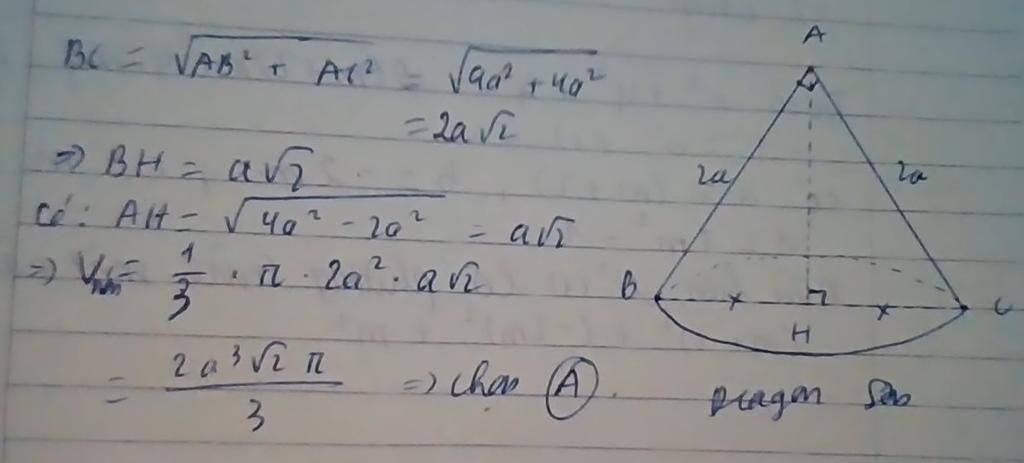 BC = √(AB² + AC²) = √(4a² + 4a²)
= 2a√2
=> BH = a√2
Có: AH = √(4a² - 2a²) = a√2
=> V = 1/3 · π · 2a² · a√2
= 2a³√2 π / 3 => chọn A.
A
2a 2a
B C
H